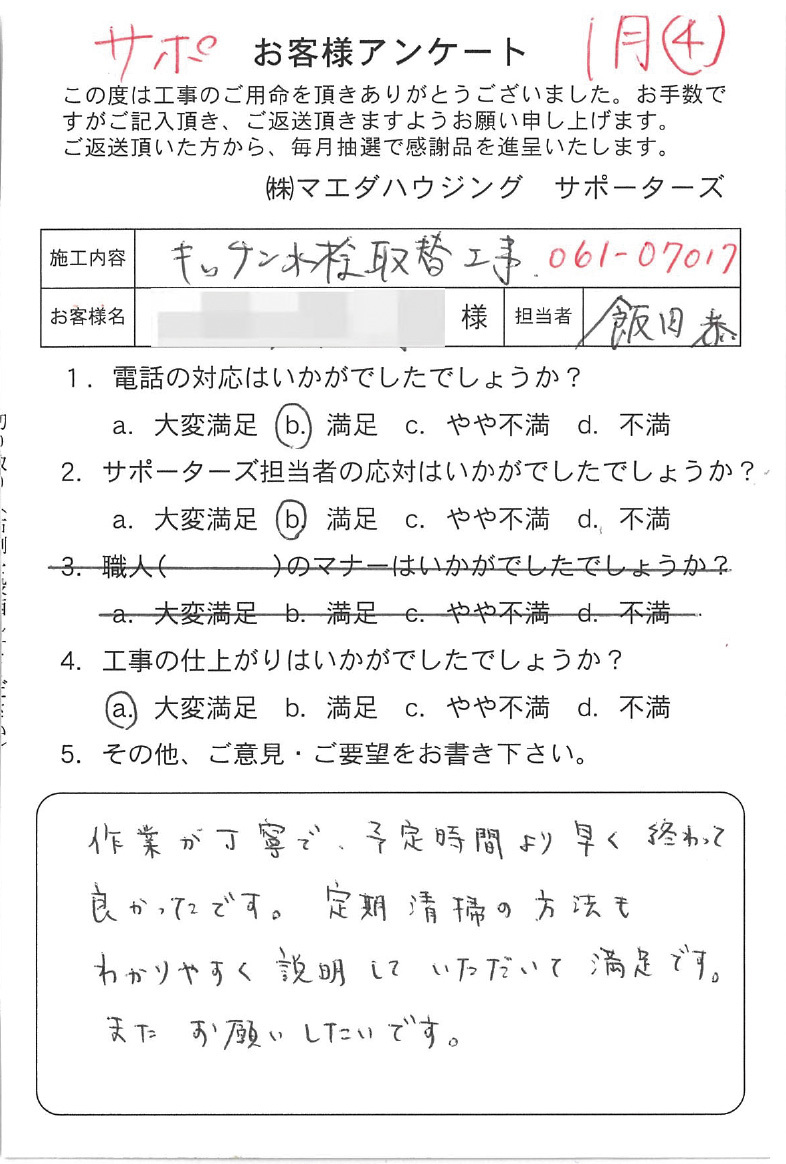 サポ お客様アンケート 1月④
この度は工事のご用命を頂きありがとうございました。お手数で
すがご記入頂き、ご返送頂きますようお願い申し上げます。
ご返送頂いた方から、毎月抽選で感謝品を進呈いたします。
㈱マエダハウジング サポーターズ
施工内容 キッチン水栓取替工事 061-07017
お客様名 様 担当者 飯田 恭
1. 電話の対応はいかがでしたでしょうか?
a. 大変満足 b. 満足 c. やや不満 d. 不満
2. サポーターズ担当者の応対はいかがでしたでしょうか?
a. 大変満足 b. 満足 c. やや不満 d. 不満
3. 職人( )のマナーはいかがでしたでしょうか?
a. 大変満足 b. 満足 c. やや不満 d. 不満
4. 工事の仕上がりはいかがでしたでしょうか?
a. 大変満足 b. 満足 c. やや不満 d. 不満
5. その他、ご意見・ご要望をお書き下さい。
作業が丁寧で、予定時間より早く終わって
良かったです。定期清掃の方法も
わかりやすく説明していただいて満足です。
またお願いしたいです。